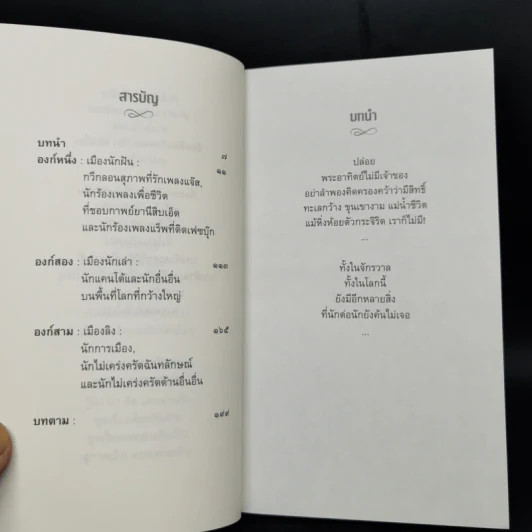 สารบัญ
บทนำ ๗
องก์หนึ่ง : เมืองนักฝัน : ๑๑
กวีกลอนสุภาพที่รักเพลงแจ๊ส,
นักร้องเพลงเพื่อชีวิต
ที่ชอบกาพย์ยานีสิบเอ็ด
และนักร้องเพลงแร็พที่ติดเฟซบุ๊ก
องก์สอง : เมืองนักเล่า : ๑๑๓
นักแคนโต้และนักอื่นอื่น
บนพื้นที่โลกที่กว้างใหญ่
องก์สาม : เมืองลิง : ๑๖๕
นักการเมือง,
นักไม่เคร่งครัดฉันทลักษณ์
และนักไม่เคร่งครัดด้านอื่นอื่น
บทตาม : ๑๙๙
บทนำ
ปล่อย
พระอาทิตย์ไม่มีเจ้าของ
อย่าลำพองคิดครองคว้าว่ามีสิทธิ์
ทะเลกว้าง ขุนเขางาม แม่น้ำชีวิต
แม้หิ่งห้อยตัวกระจิริด เราก็ไม่มี!
...
ทั้งในจักรวาล
ทั้งในโลกนี้
ยังมีอีกหลายสิ่ง
ที่นักต่อนักยังค้นไม่เจอ
...